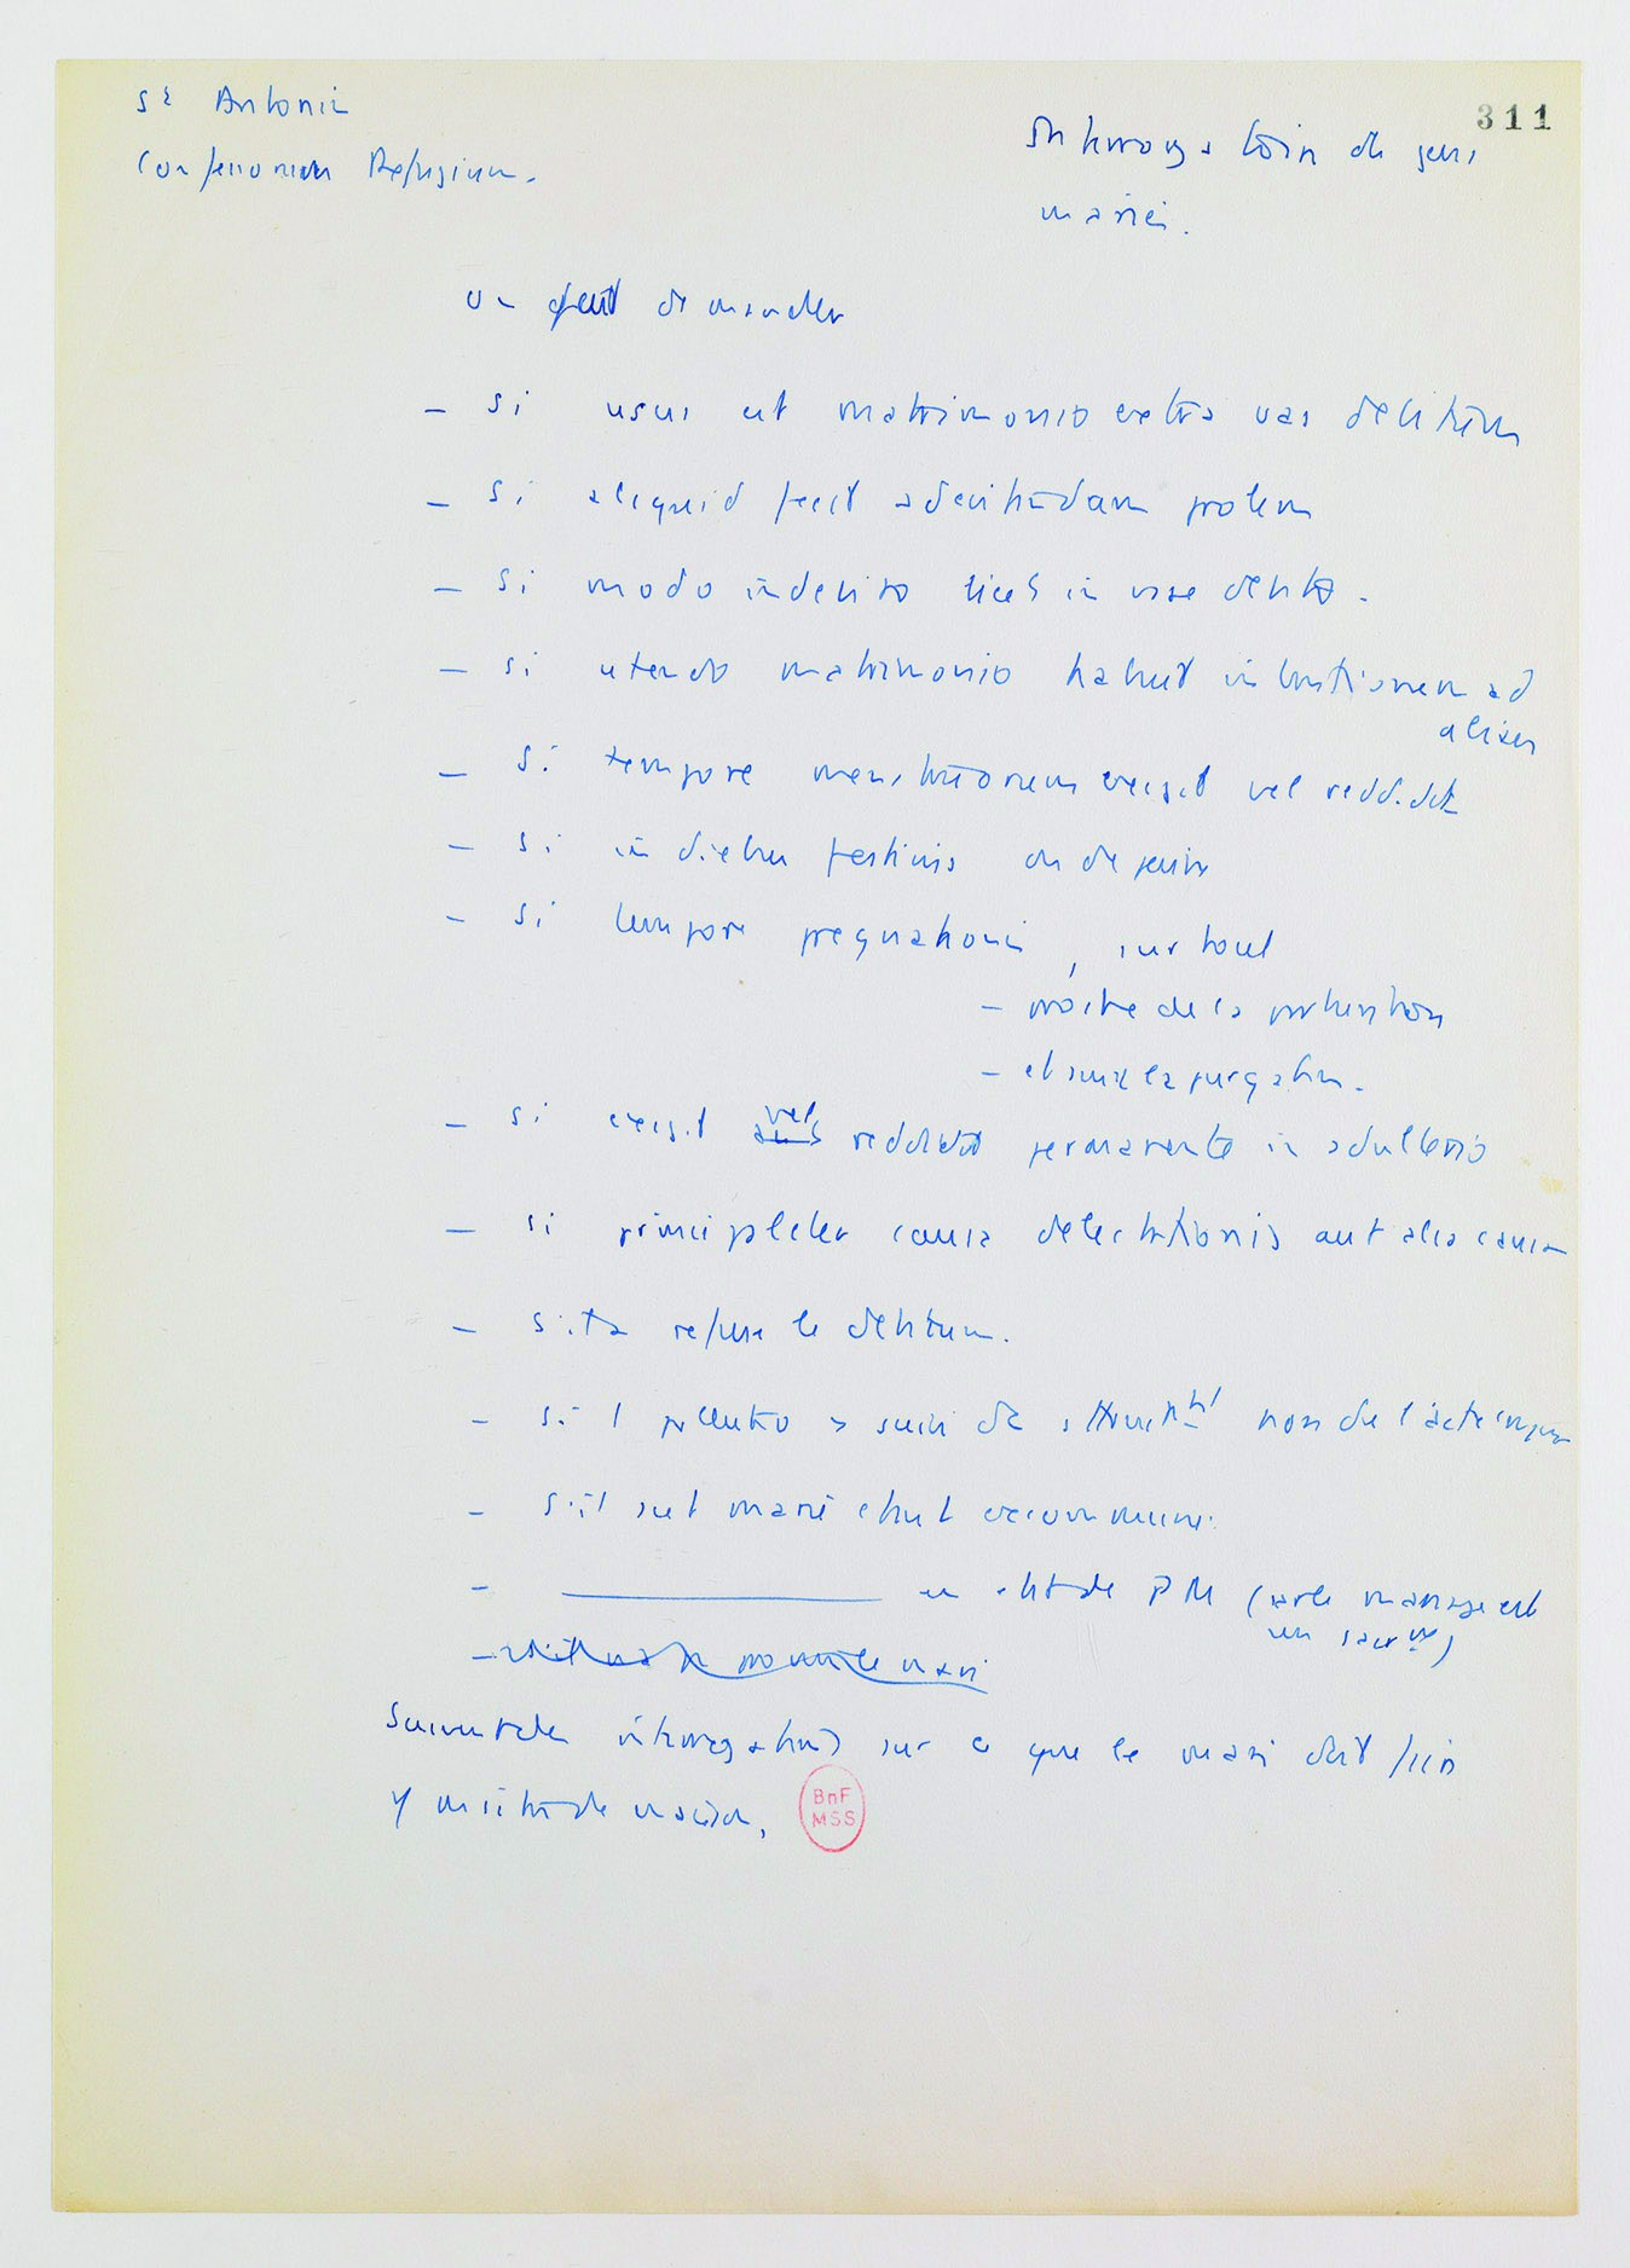 St Antonin
Confessionum Refugium.
Interrogatoire des gens
mariés.
311
on peut demander
- si usus est matrimonio extra vas debitum
- si aliquid fecit ad evitandam prolem
- si modo indebito licet in vase debito.
- si utendo matrimonio habuit intentionem ad
aliam
- si tempore menstruorum exigit vel reddidit
- si in diebus festivis ou de jeûne
- si tempore pregnationis, surtout
- proche de la parturition
- et avant la purgation.
- si exigit vel reddidit permanente in adulterio
- si principaliter causa delectationis aut alia causa
- si t'a refusé le debitum.
- si pollutio a suivi de non de l'acte
- s'il s'est marié étant excommunié.
- en état de PM (car le mariage est
un sacrt)
Suivent des interrogations sur ce que le mari doit faire